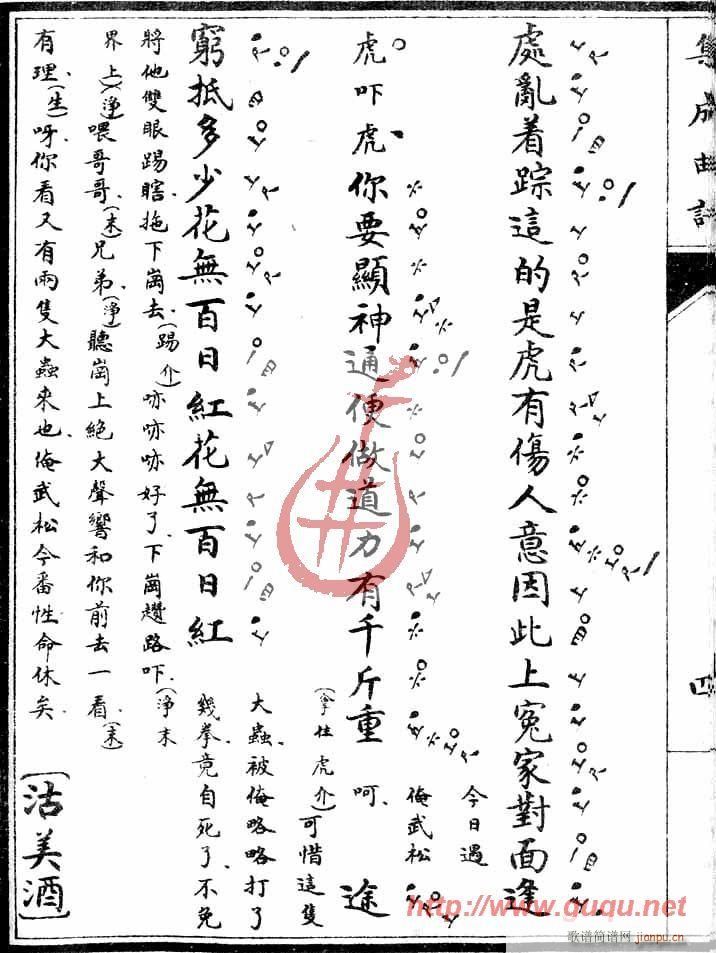 集成曲譜
四
處亂着踪這的是虎有傷人意因此上寃家對面逢
今日遇
虎吓虎你要顯神通便做道力有千斤重
俺武松
呵
途
(拿住虎介)可惜這隻
大蟲被俺略略打了
幾拳竟自死了不免
窮抵多少花無百日紅花無百日紅
將他雙眼踢瞎拖下崗去(踢介)㕻㕻㕻好了下崗趲路吓(淨末
界上)(淨)喂哥哥(末)兄弟(淨)聽崗上絕大聲響和你前去一看(末)
有理(生)呀你看又有兩隻大蟲來也俺武松今番性命休矣
[沽美酒]
http://www.guqu.net
歌谱简谱网 jianpu.cn